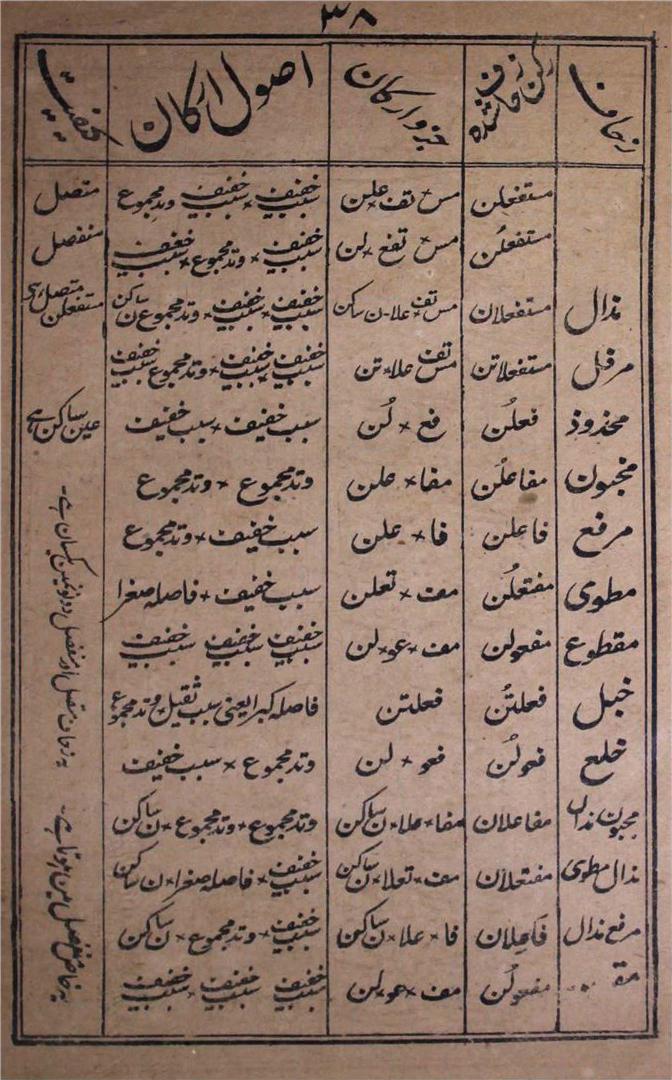 ۳۸
زحاف | رکن زحاف شدہ | جزو ارکان | اصول ارکان | کیفیت
مستفعلن | مس × تف × علن | سبب خفیف × سبب خفیف وتد مجموع | متصل
مستفعلن | مس × تفع × لن | سبب خفیف × وتد مجموع × سبب خفیف | منفصل
مذال | مستفعلان | مس × تف × علا × ن ساکن | سبب خفیف × سبب خفیف × وتد مجموع ن ساکن | مستفعلن متصل ہی
مرفل | مستفعلاتن | مس تف × علا × تن | سبب خفیف سبب خفیف × وتد مجموع سبب خفیف
محذوذ | فعلُن | فع × لُن | سبب خفیف × سبب خفیف | عین ساکن ہے
مخبون | مفاعلُن | مفا × علن | وتد مجموع × وتد مجموع
مرفع | فاعلن | فا × علن | سبب خفیف × وتد مجموع
مطوی | مفتعلُن | مف × تعلن | سبب خفیف × فاصلہ صغرا
مقطوع | مفعولن | مف × عو × لن | سبب خفیف سبب خفیف سبب خفیف
خبل | فعلتُن | فعلتن | فاصلہ کبرا یعنی سبب ثقیل وتد مجموع
خلع | فعولُن | فعو × لن | وتد مجموع × سبب خفیف
مخبون مذال | مفاعلان | مفا × علا × ن ساکن | وتد مجموع × وتد مجموع × ن ساکن
مذال مطوی | مفتعلان | مف × تعلا × ن ساکن | سبب خفیف × فاصلہ صغرا × ن ساکن
مرفع مذال | فاعلان | فا × علا × ن ساکن | سبب خفیف × وتد مجموع × ن ساکن
مفعولُن | مف × عو × لن | سبب خفیف سبب خفیف سبب خفیف
یہ زحاف متصل اور منفصل دونونمین یکسان ہے۔
یہ خاص منفصل مین ہوتا ہے۔